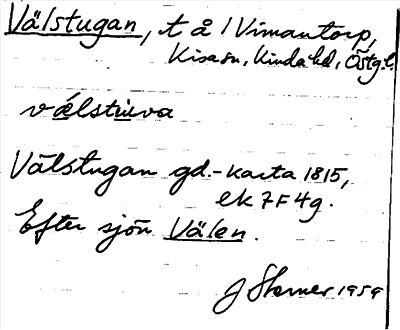 Välstugan, t å 1 Vimantorp,
Kisa sn, Kinda hd, Östg.l.
välstuva
Välstugan gd.-karta 1815,
ek 7F4g.
Efter sjön Välen.
J Sterner 1959